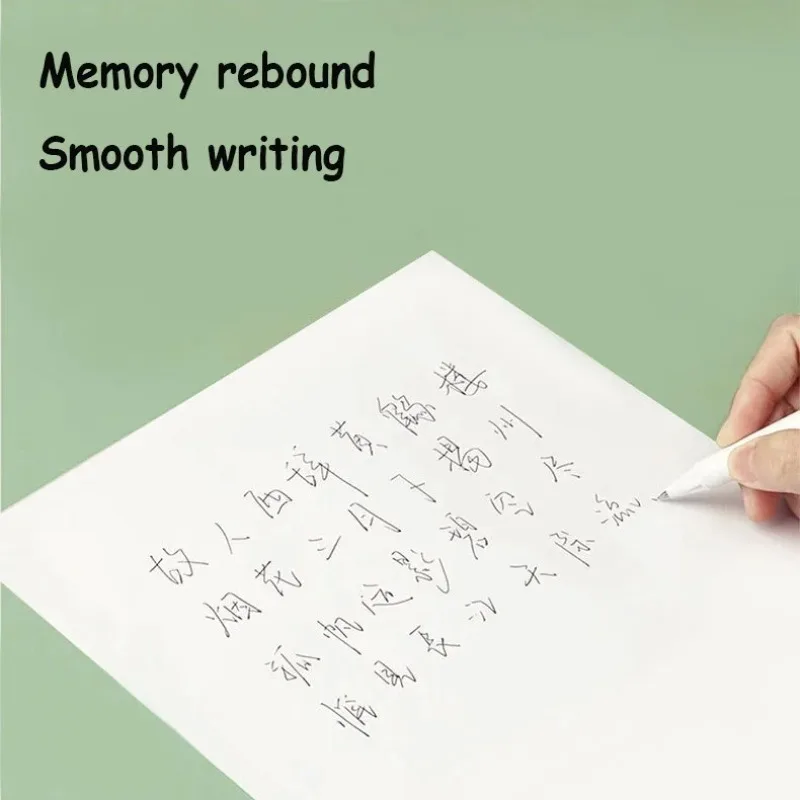 Memory rebound
Smooth writing
故人西辞黄鶴楼
烟花三月下揚州
孤帆远影碧空尽
惟見長江天际流